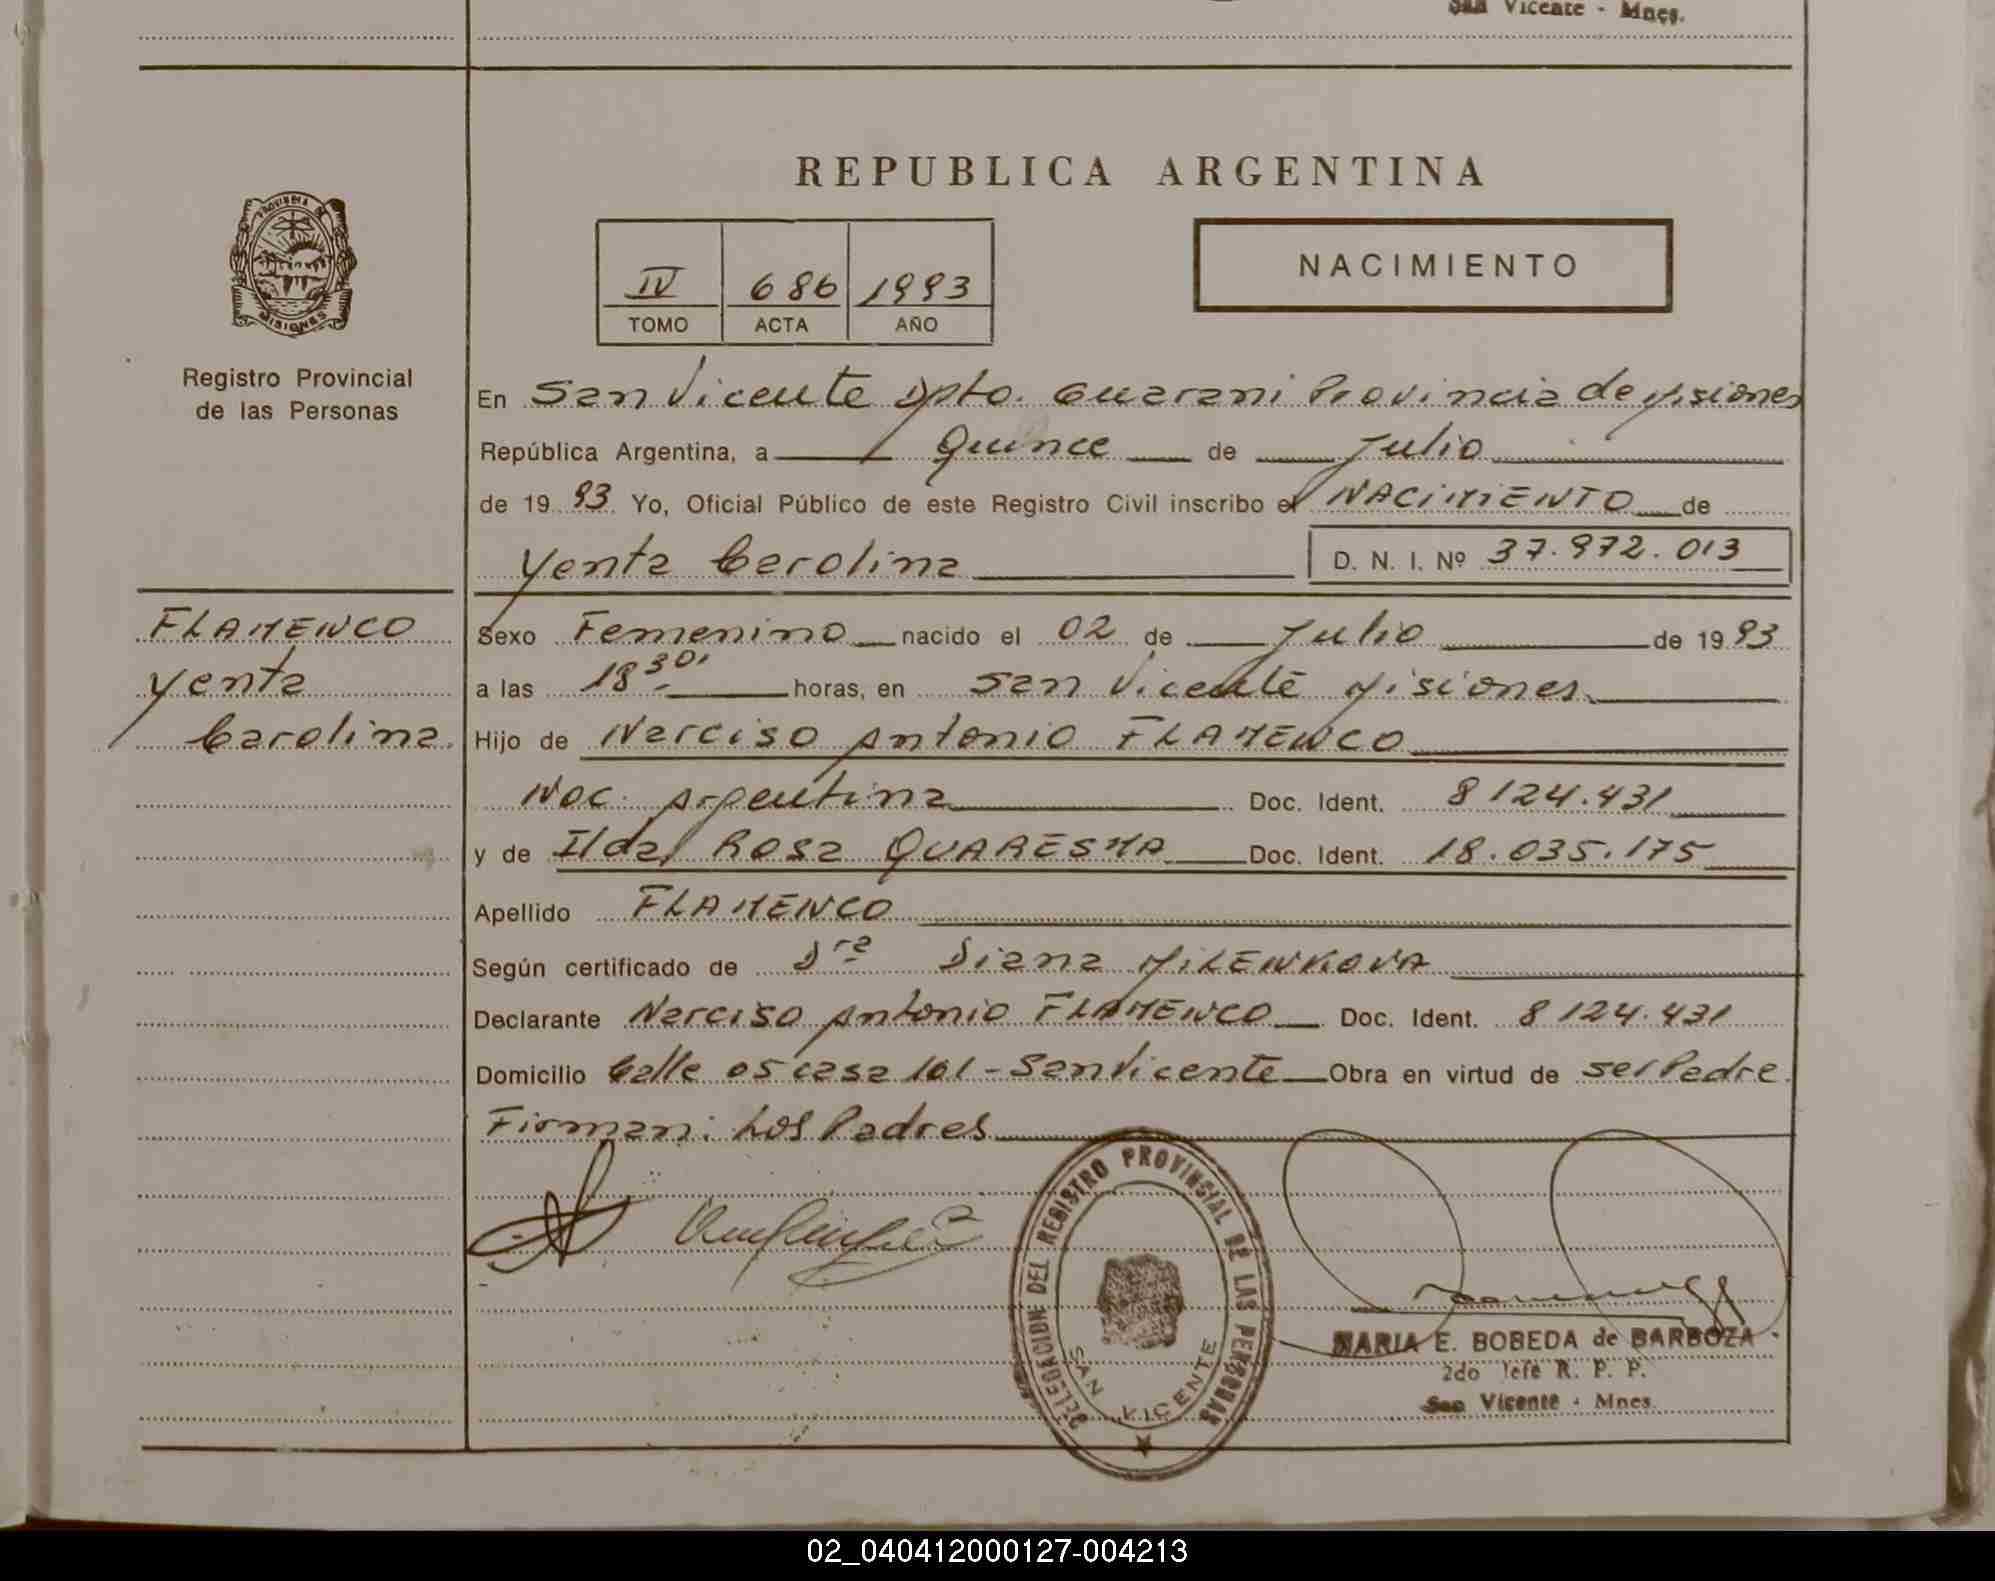 San Vicente - Mnes.
REPUBLICA ARGENTINA
PROVINCIA DE
MISIONES
IV 686 1993
TOMO ACTA AÑO
NACIMIENTO
Registro Provincial
de las Personas
En San Vicente Dpto. Guarani Provincia de Misiones
República Argentina, a Quince de Julio
de 19 93 Yo, Oficial Público de este Registro Civil inscribo el NACIMIENTO de
Yenta Carolina D. N. I. Nº 37.972.013
FLAMENCO
Yenta
Carolina
Sexo Femenino nacido el 02 de Julio de 19 93
a las 18 30' horas, en San Vicente Misiones
Hijo de Narciso Antonio FLAMENCO
Nac. Argentina Doc. Ident. 8 124.431
y de Ilda Rosa QUARESMA Doc. Ident. 18.035.175
Apellido FLAMENCO
Según certificado de Dra Diana MILENKOVA
Declarante Narciso Antonio FLAMENCO Doc. Ident. 8 124.431
Domicilio Calle 05 casa 101 - San Vicente Obra en virtud de ser Padre
Firman: Los Padres
DELEGACION DEL REGISTRO PROVINCIAL DE LAS PERSONAS
SAN VICENTE
MARIA E. BOBEDA de BARBOZA
2do Jefe R. P. P.
San Vicente - Mnes.
02_040412000127-004213